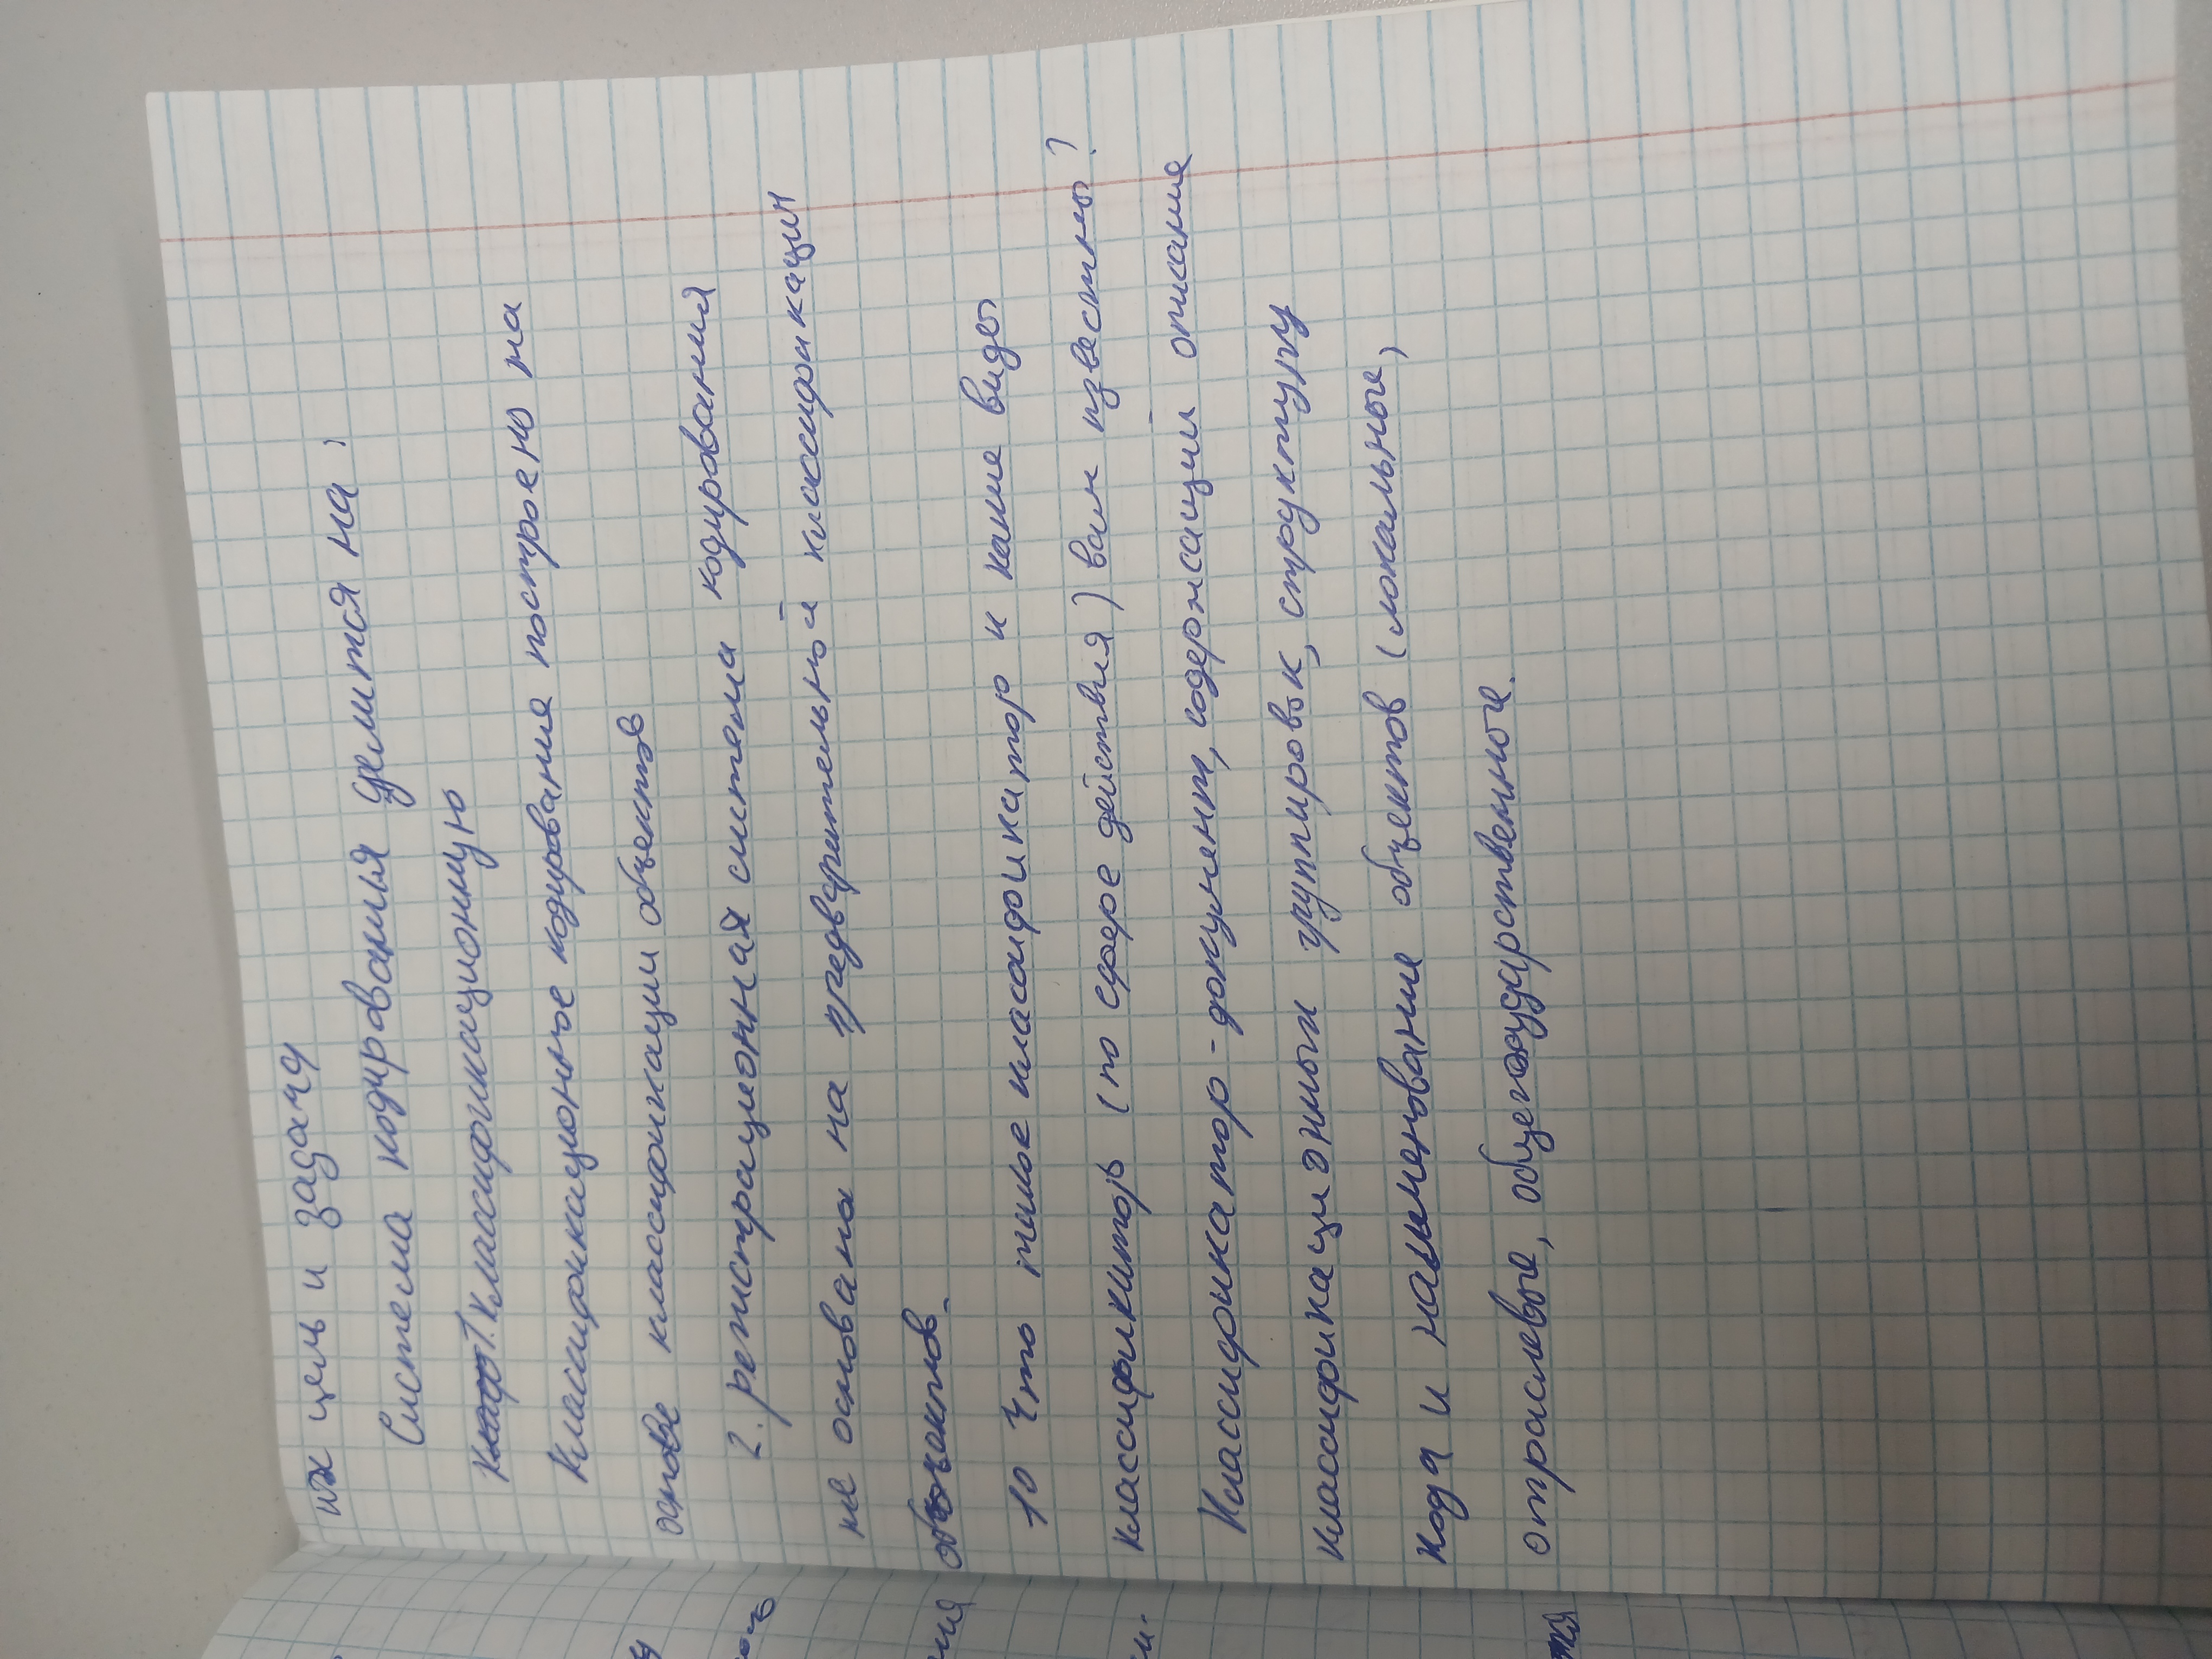 их цель и задачи
Система кодирования делится на:
1. Классификационную
Классификационное кодирование построено на
основе классификации объектов
2. регистрационная система кодирования
не основана на предварительной классификации
объектов.
10 Что такое классификатор и какие виды
классификатор (по сфере действия) вам известны?
Классификатор - документ, содержащий описание
классификационных группировок, структуру
кода и наименование объектов (локальные,
отраслевые, общегосударственные.
ния